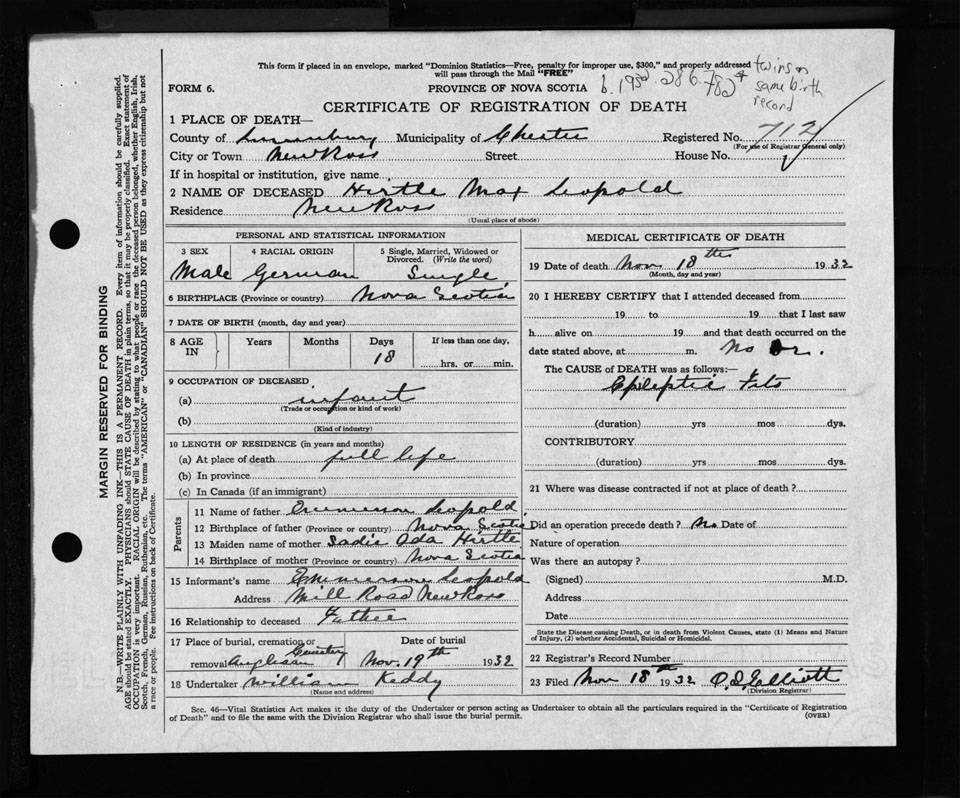 This form if placed in an envelope, marked "Dominion Statistics—Free, penalty for improper use, $300," and properly addressed
will pass through the Mail "FREE"
twins on
same birth
record
FORM 6.
PROVINCE OF NOVA SCOTIA
b. 1932. 286.782
CERTIFICATE OF REGISTRATION OF DEATH
1 PLACE OF DEATH—
County of Lunenburg Municipality of Chester Registered No. 712
(For use of Registrar General only)
City or Town New Ross Street House No.
If in hospital or institution, give name
2 NAME OF DECEASED Hirtle Max Leopold
Residence New Ross
(Usual place of abode)
PERSONAL AND STATISTICAL INFORMATION
3 SEX 4 RACIAL ORIGIN 5 Single, Married, Widowed or
Divorced. (Write the word)
Male German Single
6 BIRTHPLACE (Province or country) Nova Scotia
7 DATE OF BIRTH (month, day and year)
8 AGE IN Years Months Days If less than one day,
18 hrs. or min.
9 OCCUPATION OF DECEASED
(a) infant
(Trade or occupation or kind of work)
(b)
(Kind of industry)
10 LENGTH OF RESIDENCE (in years and months)
(a) At place of death full life
(b) In province
(c) In Canada (if an immigrant)
Parents
11 Name of father Emmerson Leopold
12 Birthplace of father (Province or country) Nova Scotia
13 Maiden name of mother Sadie Ada Hirtle
14 Birthplace of mother (Province or country) Nova Scotia
15 Informant's name Emmerson Leopold
Address Mill Road New Ross
16 Relationship to deceased Father
17 Place of burial, cremation or Date of burial
Cemetery
removal Anglican Nov. 19th 1932
18 Undertaker William Keddy
(Name and address)
MEDICAL CERTIFICATE OF DEATH
19 Date of death Nov. 18th 1932
(Month, day and year)
20 I HEREBY CERTIFY that I attended deceased from
19 to 19 that I last saw
h alive on 19 and that death occurred on
date stated above, at m. No Dr.
The CAUSE of DEATH was as follows:—
Epileptic Fits
(duration) yrs mos dys.
CONTRIBUTORY
(duration) yrs mos dys.
21 Where was disease contracted if not at place of death?
Did an operation precede death? No Date of
Nature of operation
Was there an autopsy?
(Signed) M.D.
Address
Date
State the Disease causing Death, or in death from Violent Causes, state (1) Means and Nature
of Injury, (2) whether Accidental, Suicidal or Homicidal.
22 Registrar's Record Number
23 Filed Nov 18th 1932 Elliott
(Division Registrar)
Sec. 46—Vital Statistics Act makes it the duty of the Undertaker or person acting as Undertaker to obtain all the particulars required in the "Certificate of Registration
of Death" and to file the same with the Division Registrar who shall issue the burial permit. (OVER)
MARGIN RESERVED FOR BINDING
N.B.—WRITE PLAINLY WITH UNFADING INK—THIS IS A PERMANENT RECORD. Every item of information should be carefully supplied.
AGE should be stated EXACTLY. PHYSICIANS should STATE CAUSE OF DEATH in plain terms, so that it may be properly classified. Exact statement of
OCCUPATION is very important. RACIAL ORIGIN will be described by stating to what people or race the deceased person belonged, whether English, Irish,
Scotch, French, German, Russian, Ruthenian, etc. The terms "AMERICAN" or "CANADIAN" SHOULD NOT BE USED as they express citizenship but not
a race or people. See instructions on back of Certificate.